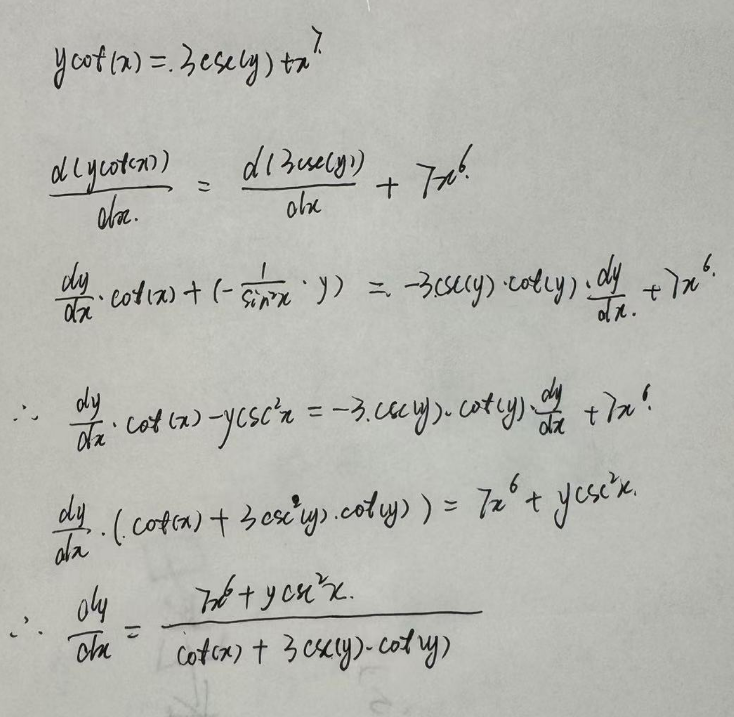 y cot(x) = 3csc(y) + x^7.
d(y cot(x))/dx. = d(3csc(y))/dx + 7x^6.
dy/dx · cot(x) + (- 1/sin²x · y) = -3csc(y) · cot(y) · dy/dx. + 7x^6.
∴ dy/dx · cot(x) - y csc²x = -3. csc(y) · cot(y) · dy/dx + 7x^6.
dy/dx · (cot(x) + 3 csc(y) · cot(y)) = 7x^6 + y csc²x.
∴ dy/dx = 7x^6 + y csc²x. / cot(x) + 3 csc(y) · cot(y)